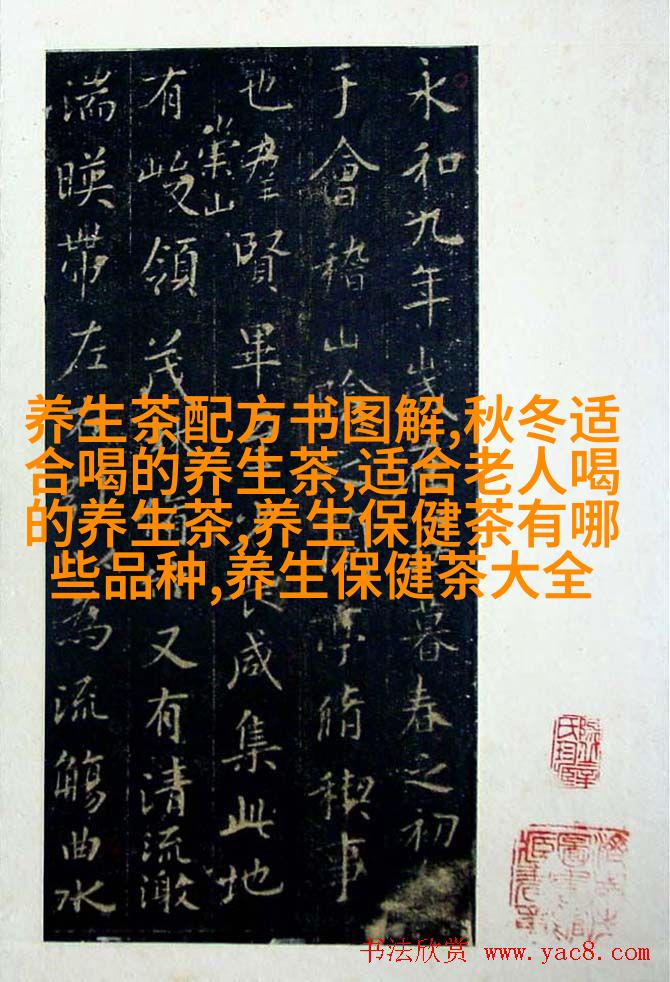 永和九年歲暮春之初
于會稽山陰之亭脩稧事
也羣賢畢咸集此地
有崇山峻領茂又有清流激
湍暎帶左右為流觴曲水
养生茶配方书图解,秋冬适
合喝的养生茶,适合老人喝
的养生茶,养生保健茶有哪
些品种,养生保健茶大全
书法欣赏 www.yac8.com